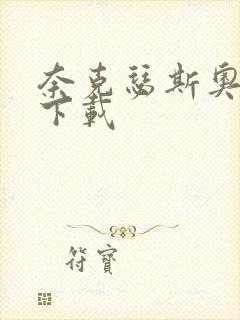 奈克瑟斯奥
下载
符寶